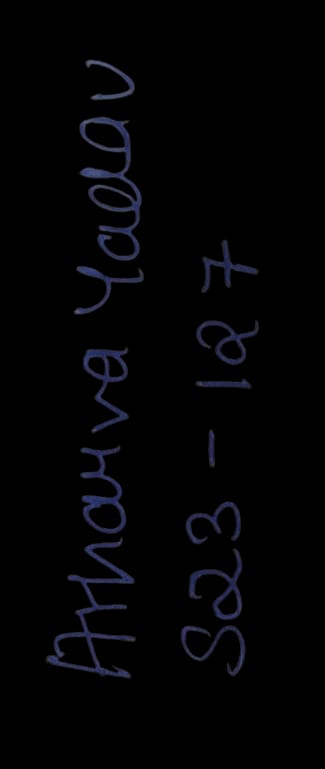 Atharva Yadav
S23 - 127